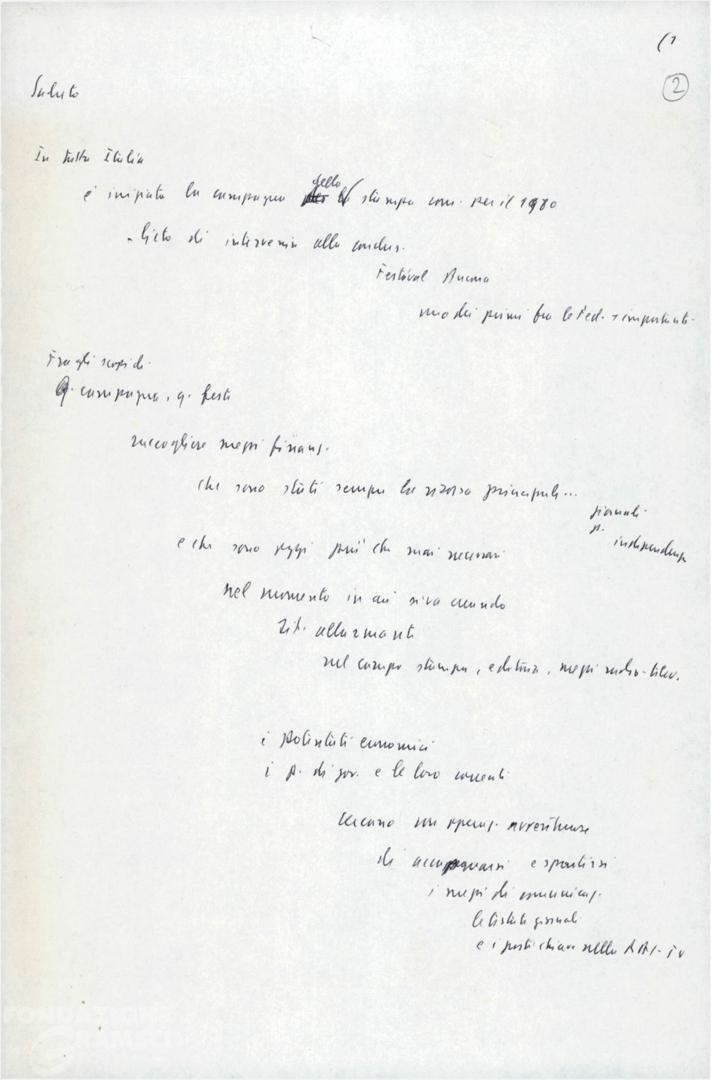 (1
2
Saluto
In tutta Italia
è iniziata la campagna della stampa com. per il 1980
- lieto di intervenire alla conclus.
Festival Ancona
uno dei primi fra le Fed. + importanti
Fra gli scopi di
q. campagna, q. festa
raccogliere mezzi finanz.
che sono stati sempre la risorsa principale...
giornali
p.
indipendenza
e che sono oggi più che mai necessari
nel momento in cui si va creando
sit. allarmante
nel campo stampa, editoria, mezzi radio-telev.
i potentati economici
i p. di gov. e le loro correnti
cercano con
di accaparrarsi e spartirsi
i mezzi di comunicaz.
le testate giornali
e i posti chiave nella RAI-TV
FONDAZIONE
GRAMSCI